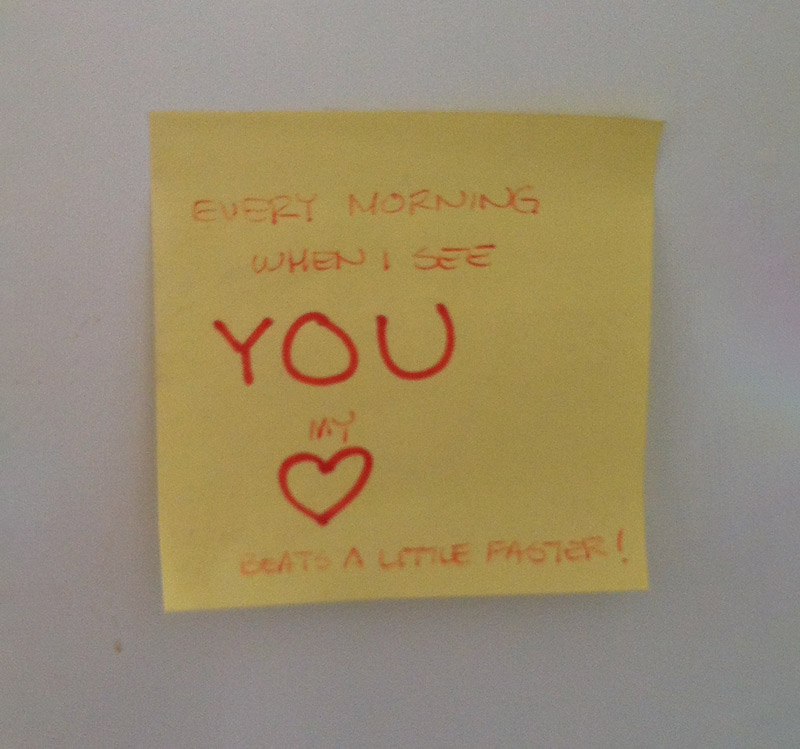 EVERY MORNING
WHEN I SEE
YOU
MY
BEATS A LITTLE FASTER!